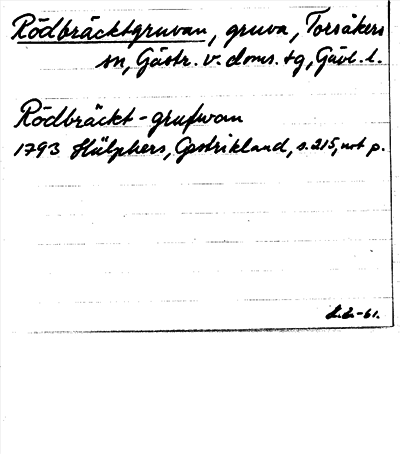 Rödbräcktgruvan, gruva, Torsåkers
sn, Gästr. v. doms. tg, Gävl. l.
Rödbräckt-grufwan
1793 Hülphers, Gestrikland, s. 215, not p.
-61.